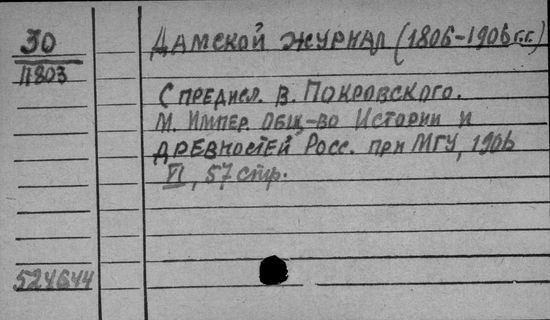 30
11803
Дамской журнал (1806-1906 г.г.)
С предисл. В. Покровского.
М. Импер. Общ-во Истории и
древностей Росс. при МГУ, 1906
VI, 57 стр.
524644